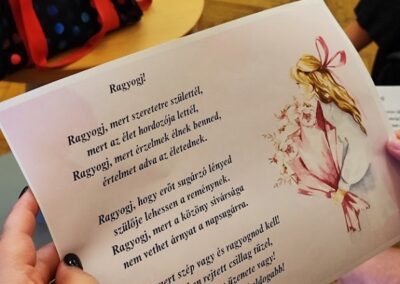 Ragyogj!
Ragyogj, mert szeretetre születtél,
mert az élet hordozója lettél,
Ragyogj, mert érzelmek élnek benned,
értelmet adva az életednek.
Ragyogj, hogy erőt sugárzó lényed
szülője lehessen a reménynek.
Ragyogj, mert a közöny sivársága
nem vethet árnyat a napsugárra.
mert szép vagy és ragyognod kell!
rejtett csillag tüzel,
üzenete vagy!